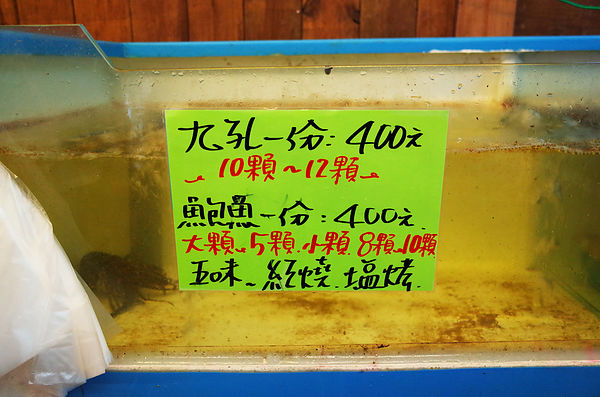 九孔一份:400元
10顆~12顆
鮑魚一份:400元
大顆~5顆.小顆8顆~10顆
五味~紅燒.塩烤.